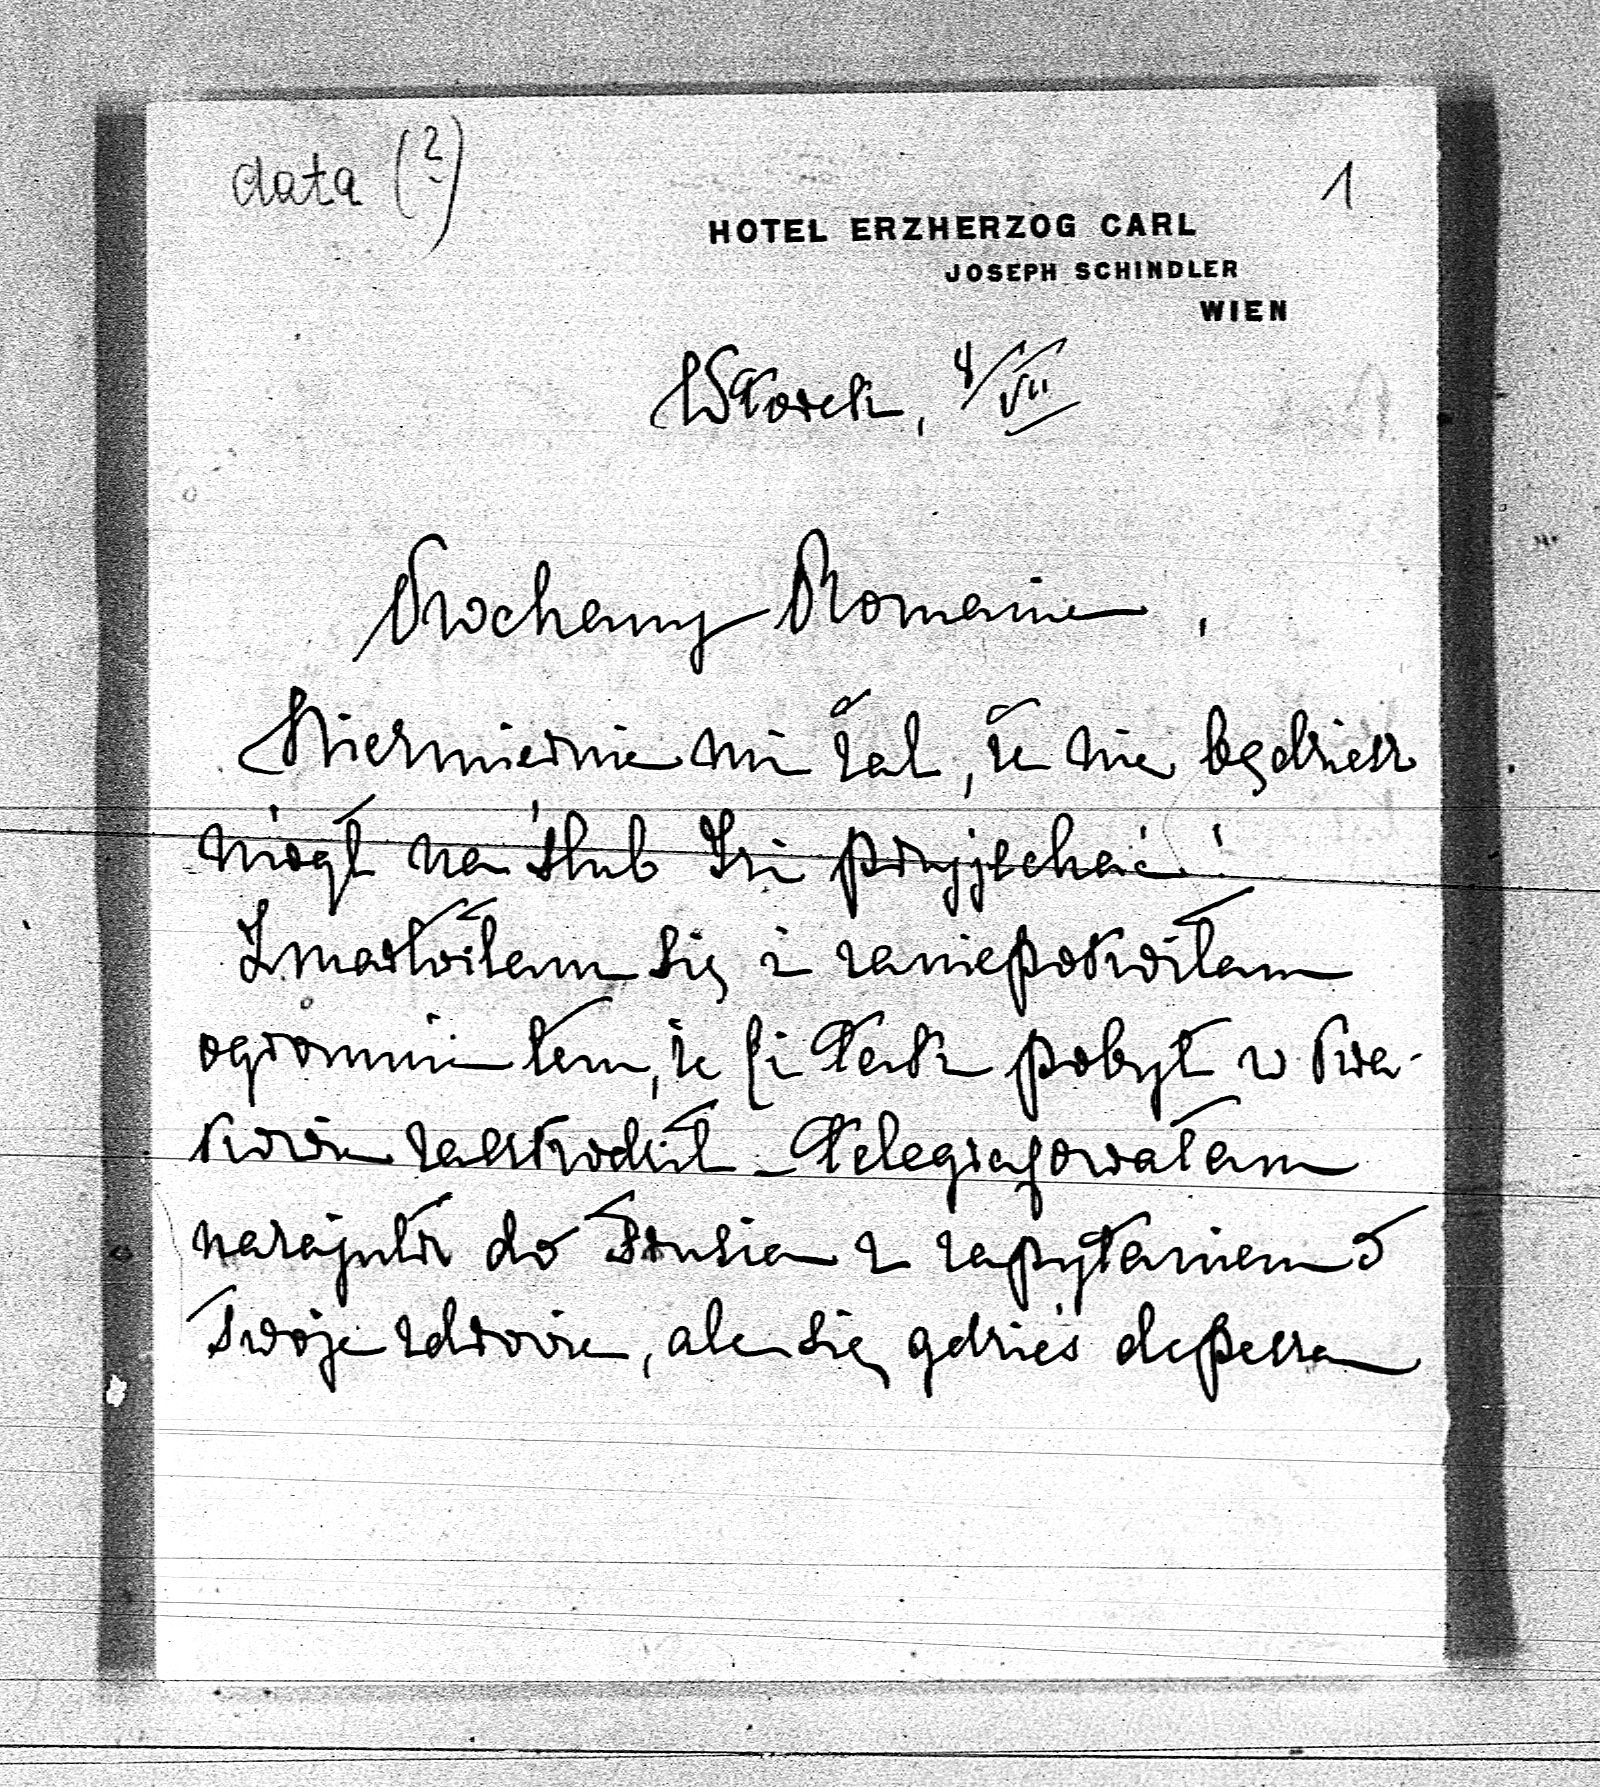 data (?)
1
HOTEL ERZHERZOG CARL
JOSEPH SCHINDLER
WIEN
Wtorek, 4/VII
Kochany Romanie,
Niezmiernie mi żal, że nie będziesz
mógł na ślub Izi przyjechać!
Zmartwiłam się i zaniepokoiłam
ogromnie tem, że Ci tak pobyt w Kra-
kowie zaszkodził – telegrafowałam
nazajutrz do Stusia z zapytaniem o
Twoje zdrowie, ale się gdzieś depesza